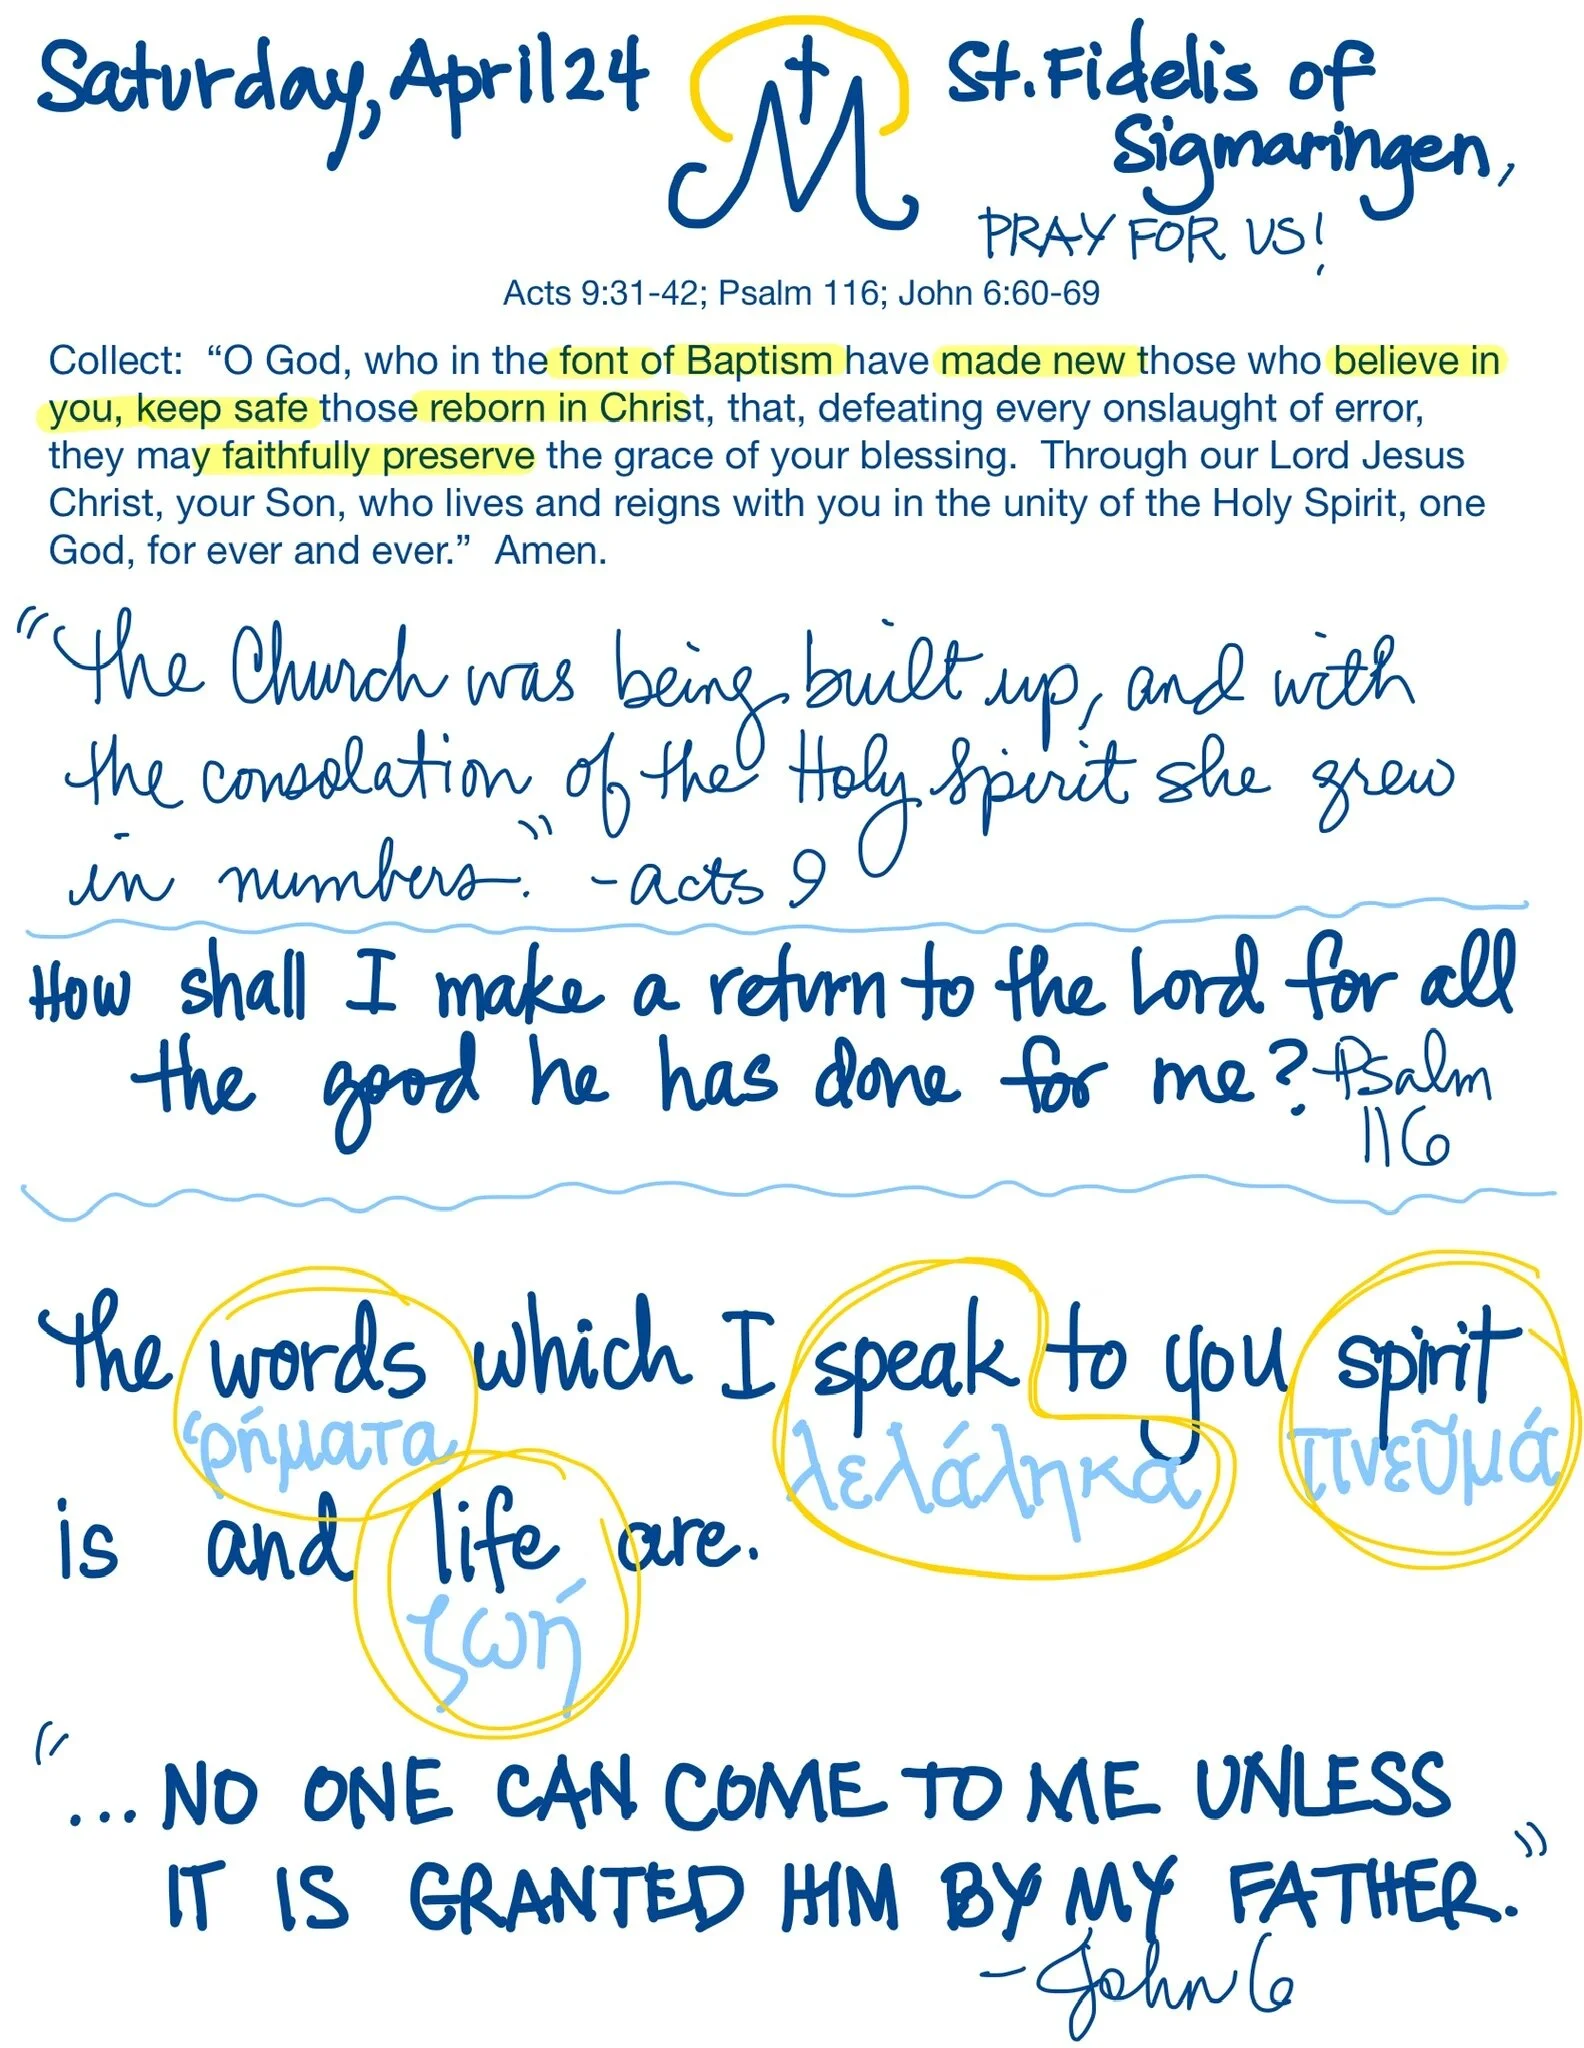 Saturday, April 24
St. Fidelis of
Sigmaringen,
PRAY FOR US!
Acts 9:31-42; Psalm 116; John 6:60-69
Collect: “O God, who in the font of Baptism have made new those who believe in
you, keep safe those reborn in Christ, that, defeating every onslaught of error,
they may faithfully preserve the grace of your blessing. Through our Lord Jesus
Christ, your Son, who lives and reigns with you in the unity of the Holy Spirit, one
God, for ever and ever.” Amen.
“The Church was being built up, and with
the consolation of the Holy Spirit she grew
in numbers.” - Acts 9
How shall I make a return to the Lord for all
the good he has done for me? Psalm
116
The words which I speak to you spirit
ῥήματα λελάληκα πνεῦμά
is and life are.
ζωή
“... NO ONE CAN COME TO ME UNLESS
IT IS GRANTED HIM BY MY FATHER.”
- John 6